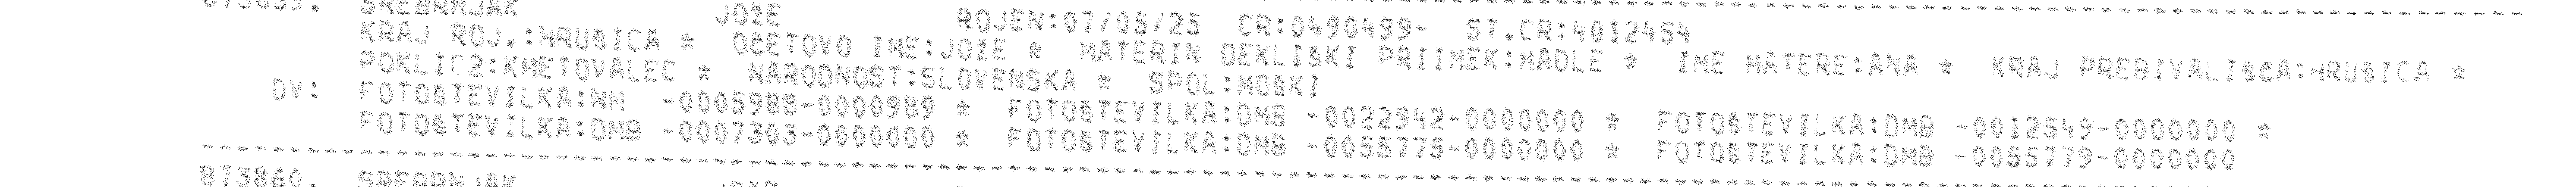 873859. SREBRNJAK JOŽE ROJEN:07/05/25 CR:0490499- ST.CR:4012454
KRAJ ROJ.:HRUŠICA * OČETOVO IME:JOŽE * MATERIN DEKLIŠKI PRIIMEK:MADLE * IME MATERE:ANA * KRAJ PREBIVALIŠČA:HRUŠICA *
POKLIC2:KMETOVALEC * NARODNOST:SLOVENSKA * SPOL:MOŠKI
DV: FOTOŠTEVILKA:NM -0005988-0000989 * FOTOŠTEVILKA:DMB -0022942-0000000 * FOTOŠTEVILKA:DMB -0012549-0000000 *
FOTOŠTEVILKA:DMB -0007303-0000000 * FOTOŠTEVILKA:DMB -0055775-0000000 * FOTOŠTEVILKA:DMB -0055779-0000000
873860. SREBRNJAK